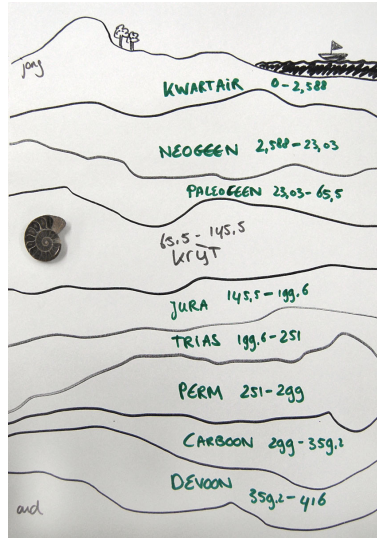 jong
KWARTAIR 0-2,588
NEOGEEN 2,588-23,03
PALEOGEEN 23,03-65,5
65.5-145.5
KRIJT
JURA 145,5-199.6
TRIAS 199.6-251
PERM 251-299
CARBOON 299-359.2
DEVOON
359.2-416
oud